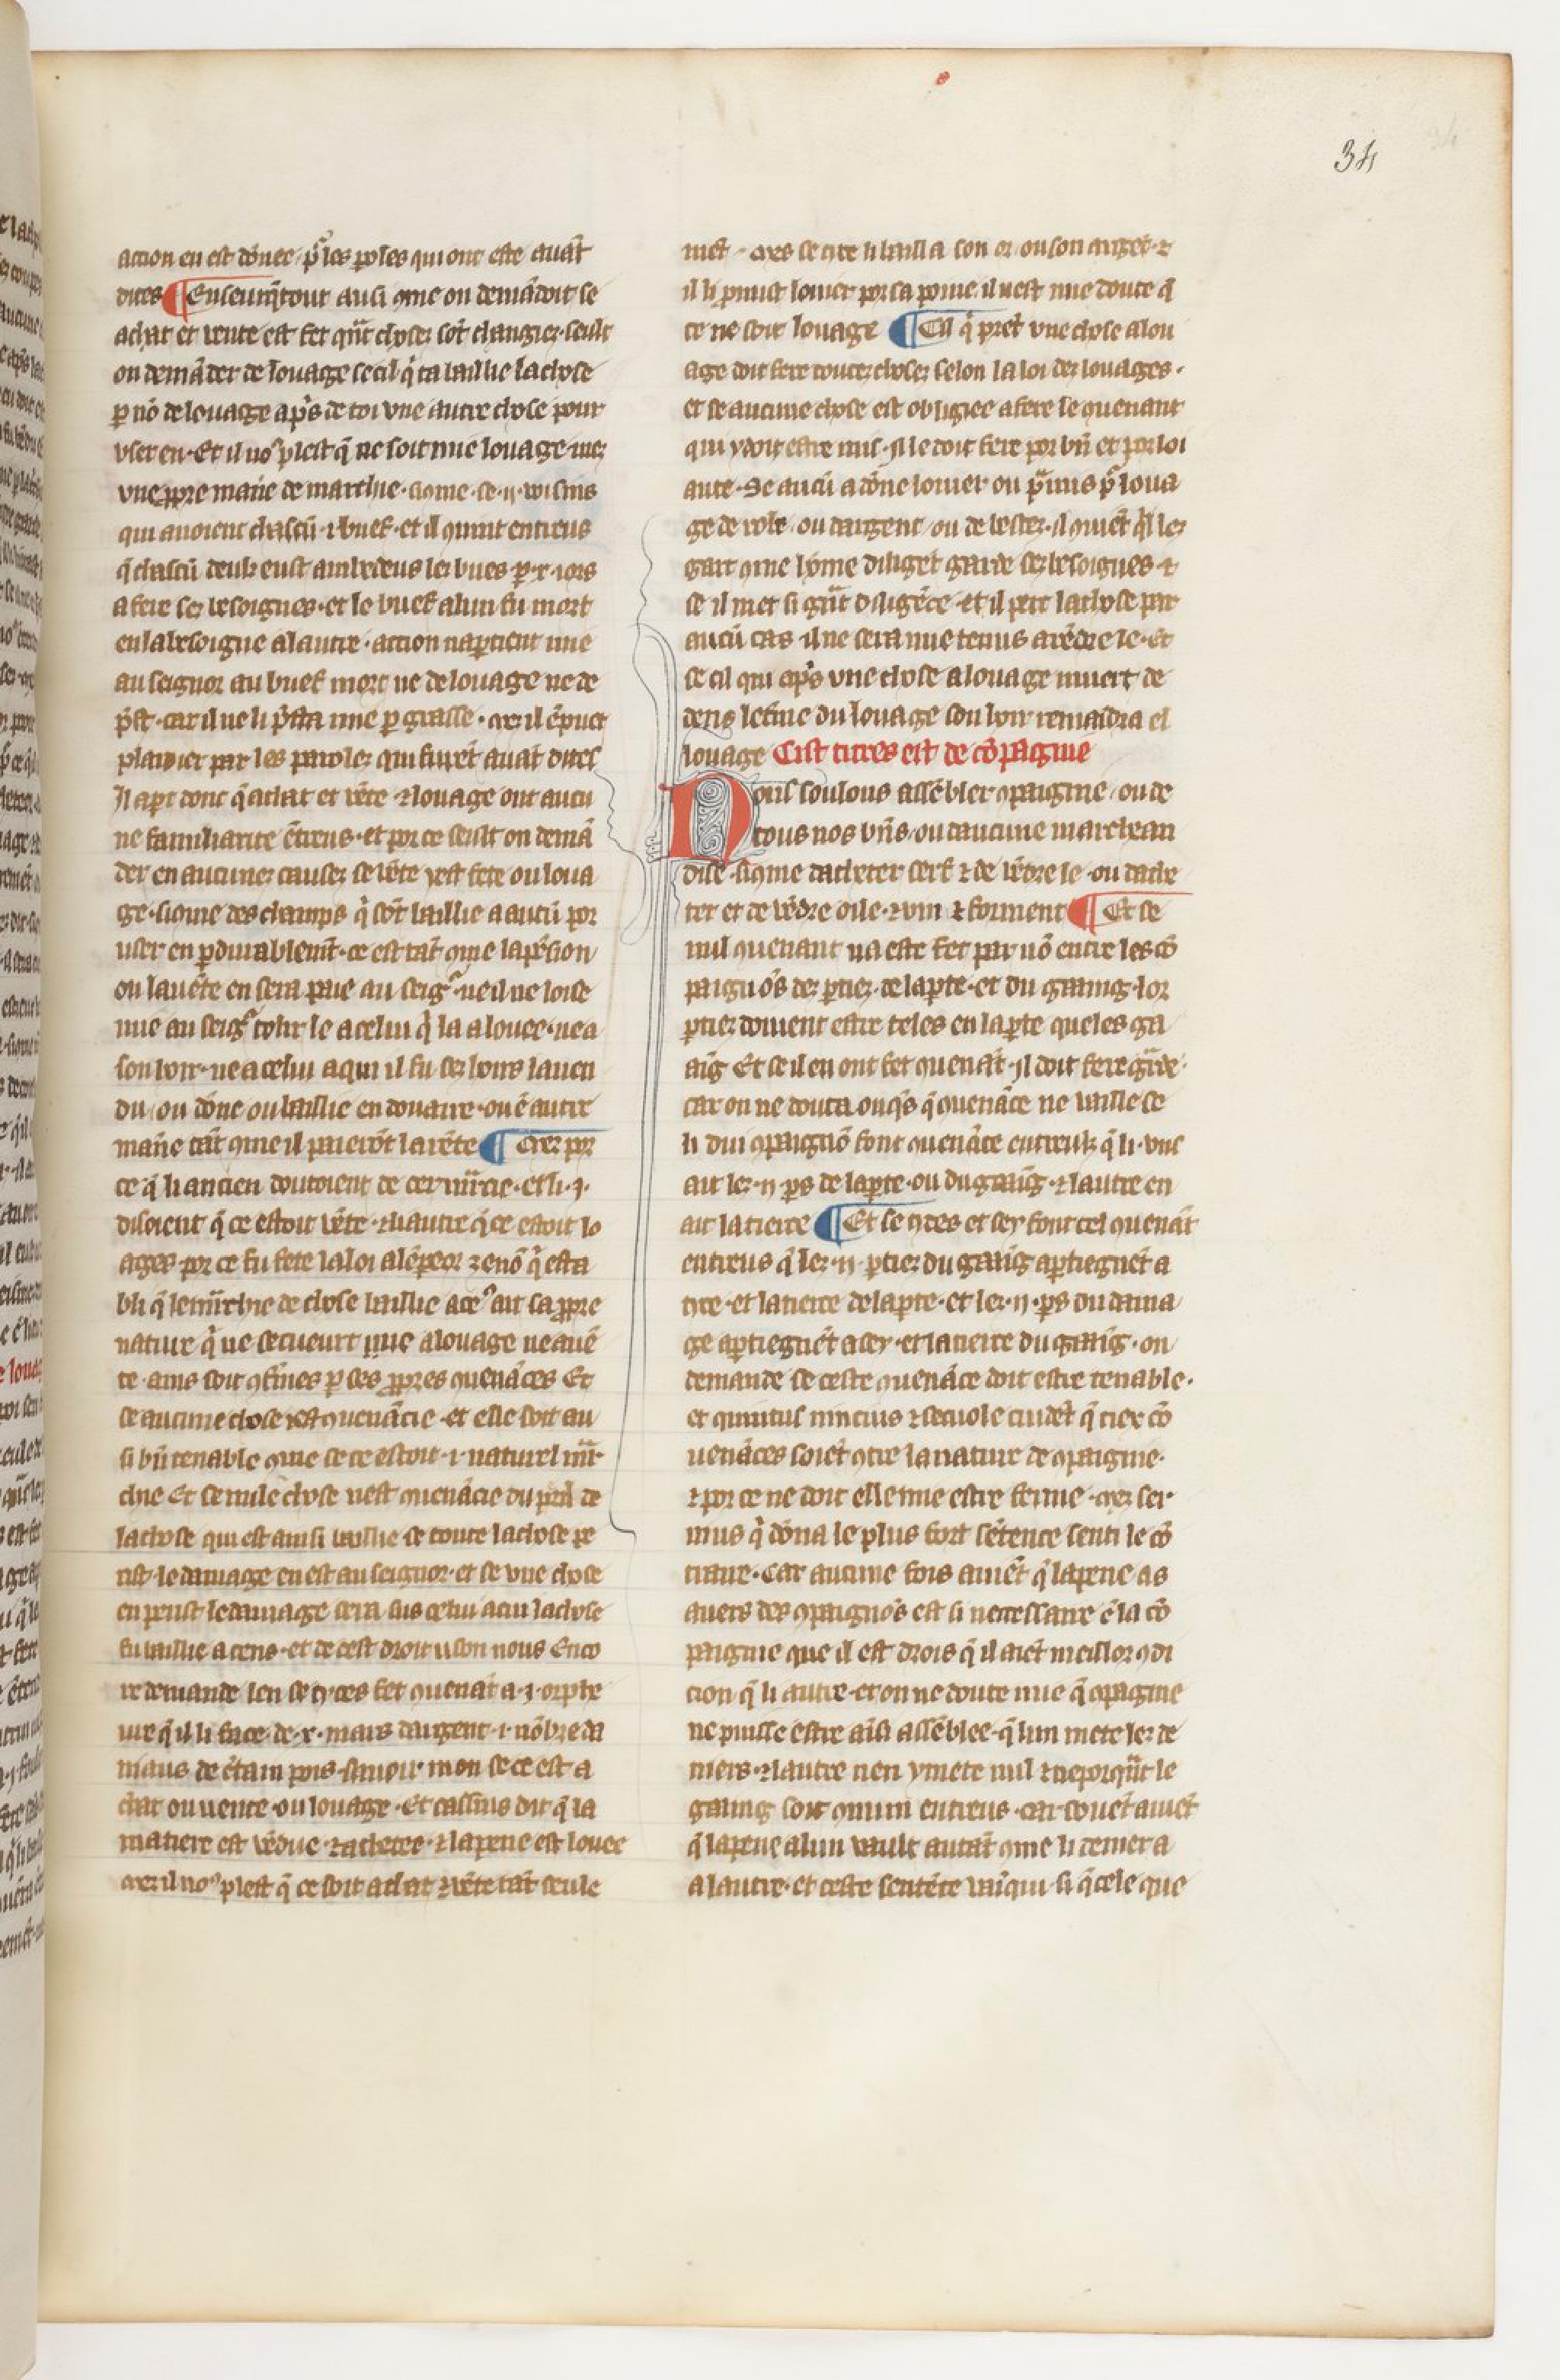 34
action en est dōnee p̃ les poles qui ont este auāt
dites ¶ Enseurq̄tout ausi ꝯme on demādoit se
achat et vente est fet q̃nt choses sōt changies seult
on demāder de louage se cil q̇ ta baillie la chose
ꝑ nō de louage ap̃s de toi vne autre chose pour
vser en. Et il noꝰ plest q̄ ne soit mie louage mes
vne ꝓpre mañe de marchie. siꝯme se .ıȷ. voisins
qui auoient chascū .ı. buef. et il ꝯuint entreus
q̄ chascū deulz eust ambedeus les bues ꝑ .x. iors
a fere ses besoignes. et le buef a lun fu mort
en la besoigne a lautre. action napꝑtient mie
au seignor au buef mort ne de louage ne de
p̃st. car il ne li p̃sta mie ꝑ grasse. mes il ē puet
plaidier par les paroles qui furēt auāt dites
Il apt donc q̄ achat et vēte ⁊ louage ont aucu
ne familiarite ētreus. et por ce seult on demā
der en aucunes causes se vēte iest fete ou loua
ge. siꝯme des champs q̇ sōt baillie a aucū por
user en ꝑdurablemt̃. ce est tāt ꝯme la pēsion
ou la uēte en sera paie au seigr̃. ne il ne loise
mie au seigr̃ tolir le a celui q̇ la a louee. ne a
son hoir. ne a celui a qui il fu ses hoirs lauen
du. ou dōne ou baillie en douaire. ou ē autre
mañe tāt ꝯme il paierōt la rēte ¶ Mes por
ce q̄ li ancien doutoient de cel mr̃cie. et li .ȷ.
disoient q̄ ce estoit vēte. ⁊ li autre q̄ ce estoit lo
ages. por ce fu fete la loi alēpeor zenō q̇ esta
bli q̄ le mr̃chie de chose baillie a ceꝰ ait sa ꝓpre
nature q̇ ne secueurt mie a louage ne a uē
te. ains soit ꝯfmes ꝑ ses ꝓpres ꝯuenāces Et
se aucune chose iest ꝯuenācie. et elle soit au
si bn̄ tenable ꝯme se ce estoit .ı. naturel mr̃
chie Et se nule chose nest ꝯuenācie du pril de
la chose qui est ainsi baillie se toute la chose pe
rist. le damage en est au seignor. et se vne chose
en perist le damage sera sus celui a cui la chose
fu baillie a cens. et de cest droit uson nous Enco
re demande len se tyces fet ꝯuenāt a .ȷ. orphe
ure q̄ il li face de .x. mars dargent .ı. nōbre da
niaus de certain pois. sauoir mon se ce est a
chat ou uente. ou louage. Et cassius dit q̄ la
matiere est vēdue. ⁊ achetee. ⁊ la peine est louee
mes il noꝰ plest q̄ ce soit achat ⁊ vēte tāt seule
met. Mes se tyce li bailla son or. ou son argēt. ⁊
il li pmist louier por sa poine. il nest mie doute q̄
ce ne soit louage ¶ Cil q̇ prēt vne chose a lou
age doit fere toutes choses selon la loi des louages.
et se aucune chose est obligiee a fere le ꝯuenant
qui y doit estre mis. il le doit fere por bn̄ et por loi
aute. Se aucū a dōne louier ou p̃mis p̃ loua
ge de robe. ou dargent. ou de bestes. il ꝯuiēt q̄l les
gart ꝯme hōme diligēt garde ses besoignes ⁊
se il met si grāt diligēce. et il pert la chose par
aucū cas. il ne sera mie tenus a rēdre le. Et
se cil qui ap̃s vne chose a louage muert de
dens le tme du louage son hoir remaīdra el
louage Cist titres est de cōpagnie
Nous soulons assēbler ꝯpaignie. ou de
tous nos bn̄s. ou daucune marchean
dise. siꝯme dacheter serf ⁊ de vēdre le. ou dache
ter et de vēdre oile. ⁊ vin ⁊ forment ¶ Et se
nul ꝯuenant na este fet par nō entre les cō
paignōs des pꝑties. de la pꝑte. et du gaaing. lor
pꝑties doiuent estre teles en la pꝑte queles ga
aig̃ Et se il en ont fet ꝯuenāt. il doit fere gārde.
car on ne douta onq̄s q̄ ꝯuenāce ne vaille se
li dui ꝯpaignō font ꝯuenāce entreulz q̄ li vns
ait les .ıȷ. ps̃ de la pꝑte. ou du gaaīg. ⁊ lautre en
ait la tierce ¶ Et se tyces et sey font tel ꝯuenāt
entreus q̄ les .ıȷ. pꝑties du gaaīg apꝑtiegnēt a
tyce. et la tierce de la pꝑte. et les .ıȷ. ps̃ du dama
ge apꝑtiegnēt a sey. et la tierce du gaaīg. on
demande se ceste ꝯuenāce doit estre tenable.
et quintus mucius ⁊ secuole cuidēt q̄ tiex cō
uenāces soiēt ꝯtre la nature de ꝯpaignie.
⁊ por ce ne doit elle mie estre ferme. mes ser
uius q̇ dōna le plus fort sētence senti le cō
traire. Car aucune fois auiēt q̄ la peine as
auers des ꝯpaignōs est si necessaire ē la cō
paignie que il est drois q̄ il aiēt meillor ꝯdi
cion q̄ li autre. et on ne doute mie q̄ ꝯpagnie
ne puisse estre aīsi assēblee. q̄ lun mete les de
niers. ⁊ lautre nen y mete nul ⁊ neporq̃nt le
gaaing soit ꝯmun entreus. car souēt auiēt
q̄ la peine a lun vault autāt ꝯme li deniera
a lautre. et ceste sentēce vaīqui. si q̄ cele que